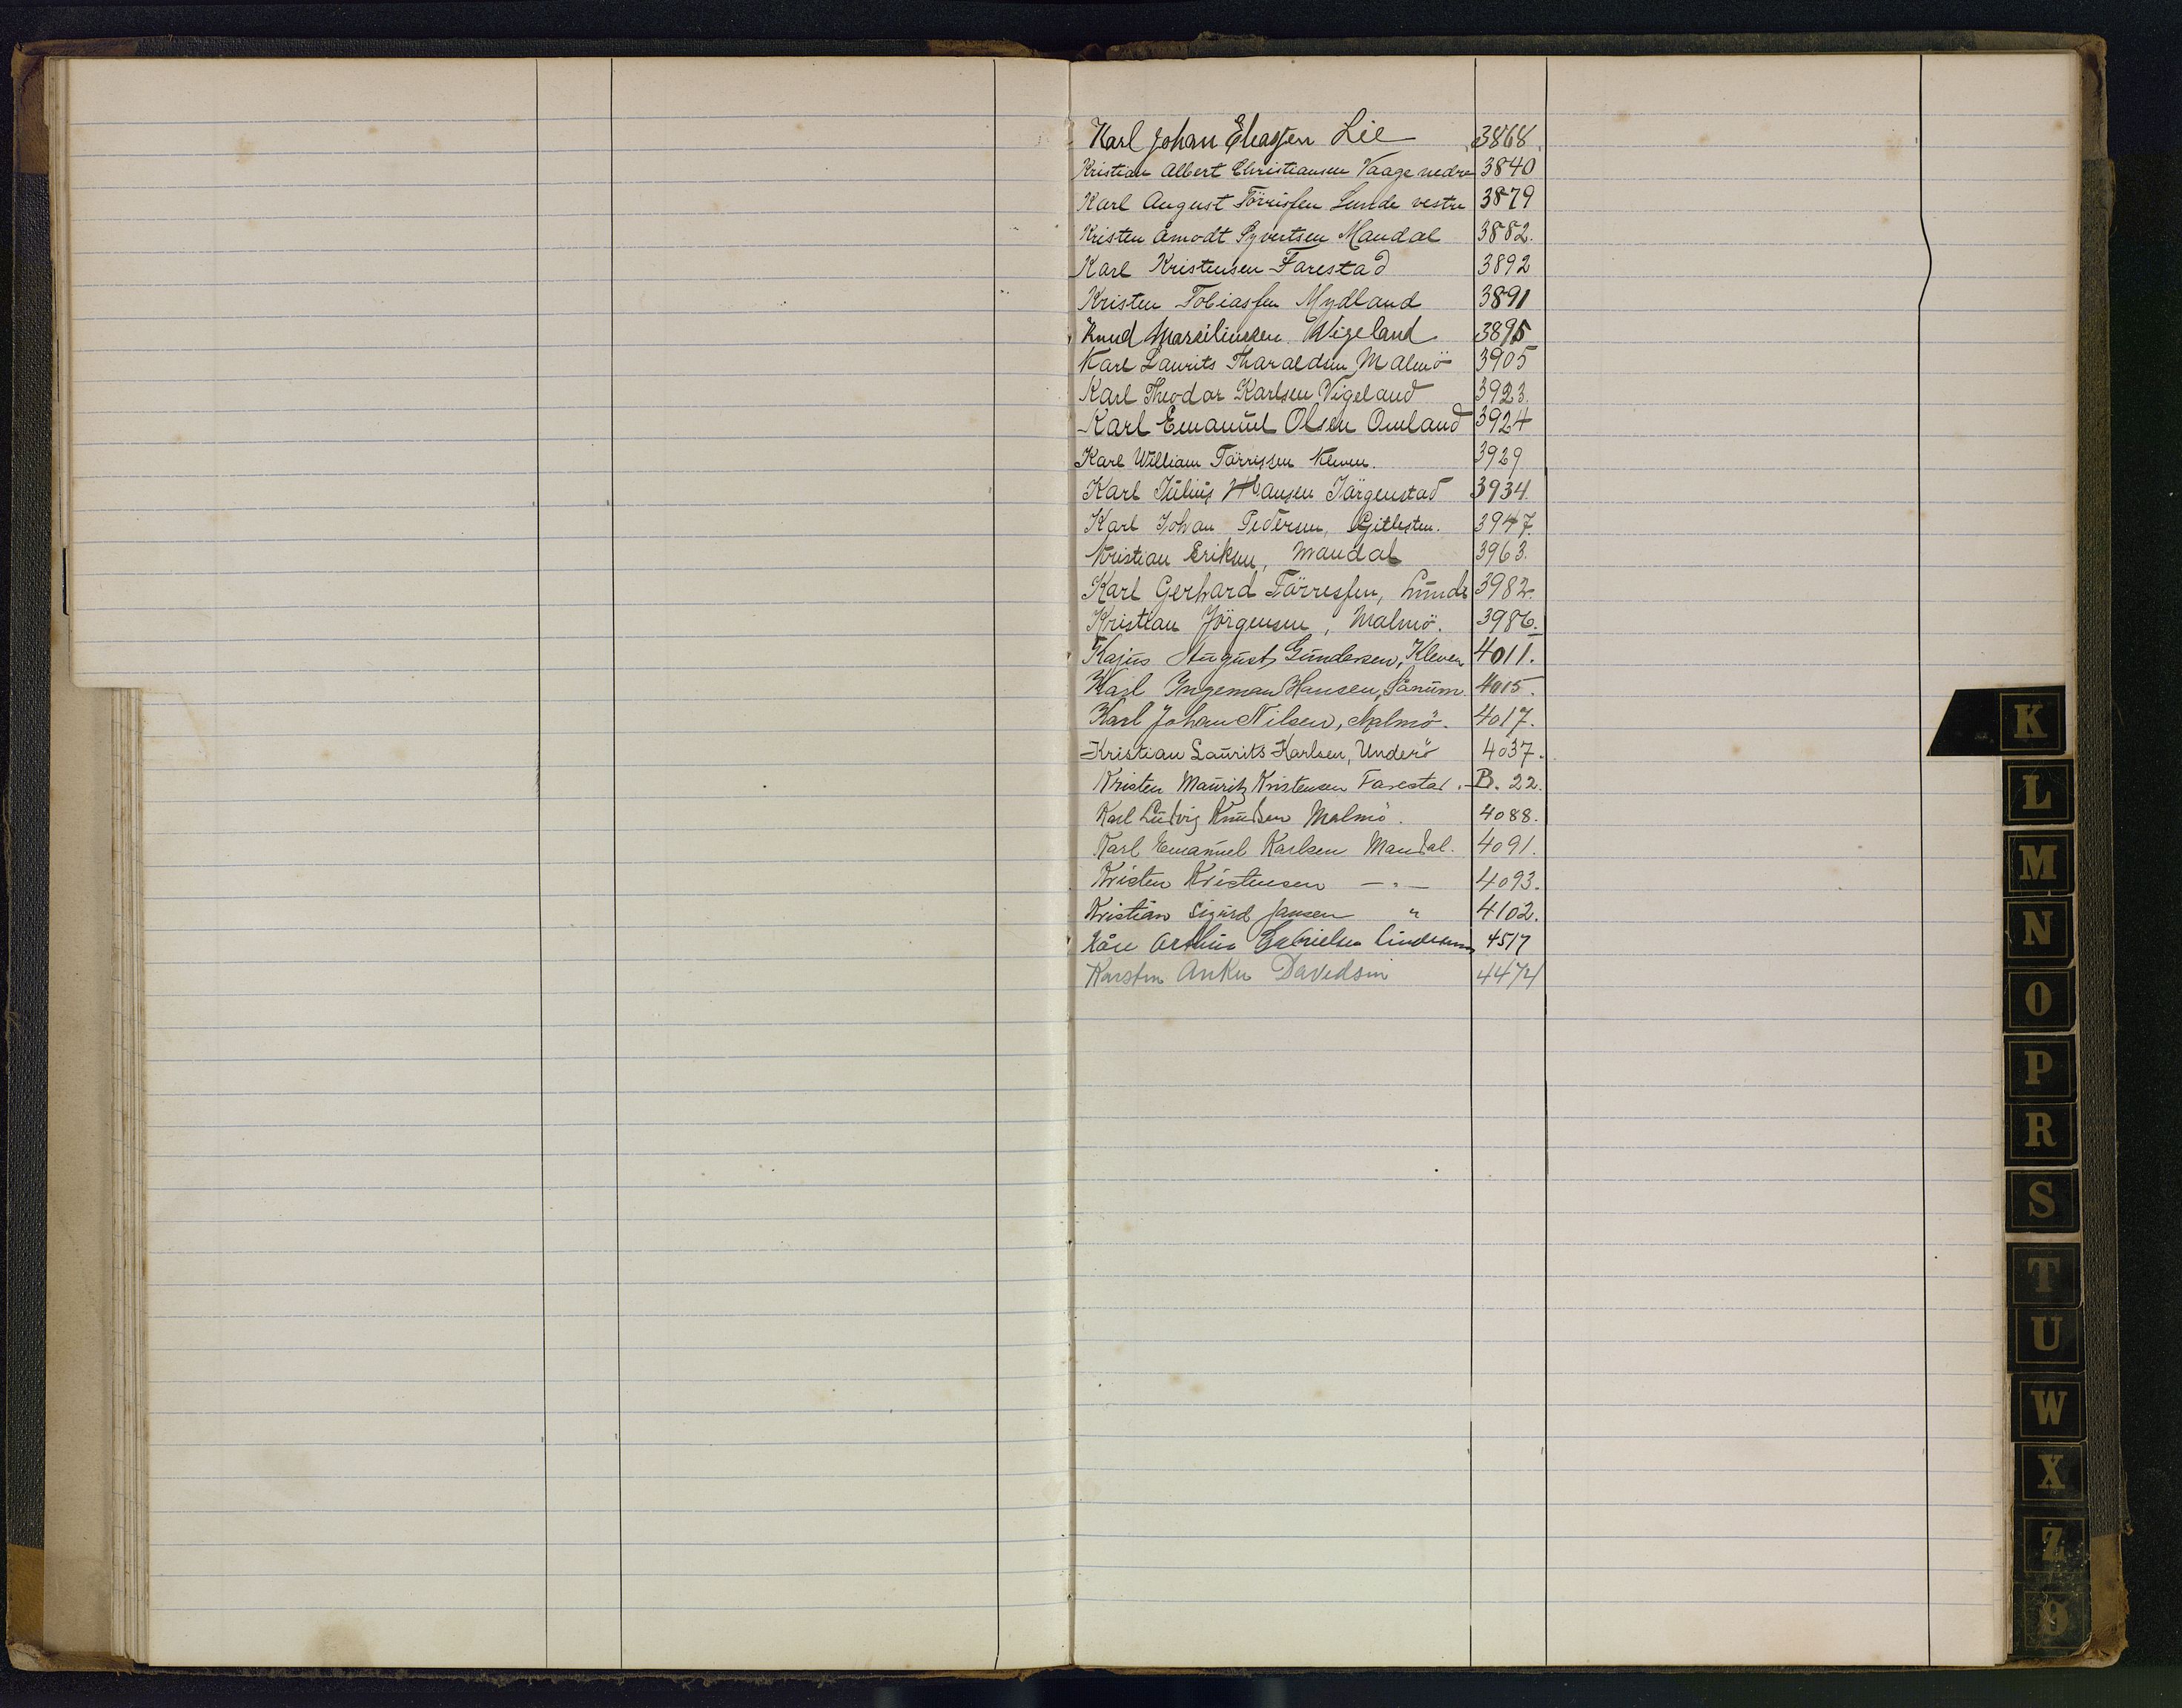 Karl Johan Eliassen Lie 3868
Kristian Albert Christiansen Vaage nedre 3840
Karl August Törrisfen Lunde vestre 3879
Kristen Amodt Syvertsen Mandal 3882.
Karl Kristensen Farestad 3892
Kristen Tobiassen Mydland 3891
Knud Marseliussen Wigeland 3895
Karl Laurits Tharaldsen Malmö 3905
Karl Theodor Karlsen Vigeland 3923.
Karl Emanuel Olsen Omland 3924
Karl William Törrissen Kleven. 3929
Karl Julius Hansen Jörgenstad 3934.
Karl Johan Pedersen, Gitlesten. 3947.
Kristian Eriksen, Mandal 3963.
Karl Gerhard Törressen, Lunde 3982.
Kristian Jörgensen, Malmö. 3986.
Kajus August Gundersen, Kleven 4011.
Karl Ingeman Hansen, Sånum. 4015.
Karl Johan Nilsen, Malmö. 4017.
Kristian Laurits Karlsen, Underö 4037.
Kristen Mauritz Kristensen Farestad. B. 22.
Karl Ludvig Knudsen Malmö. 4088.
Karl Emanuel Karlsen Mandal. 4091.
Kristen Kristensen — " — 4093.
Kristian Sigurd Jansen " 4102.
Kåre Arthur Gabrielsen Lindesnes 4517
Karsten Anker Davidsen 4474
K
L
M
N
O
P
R
S
T
U
W
X
Z